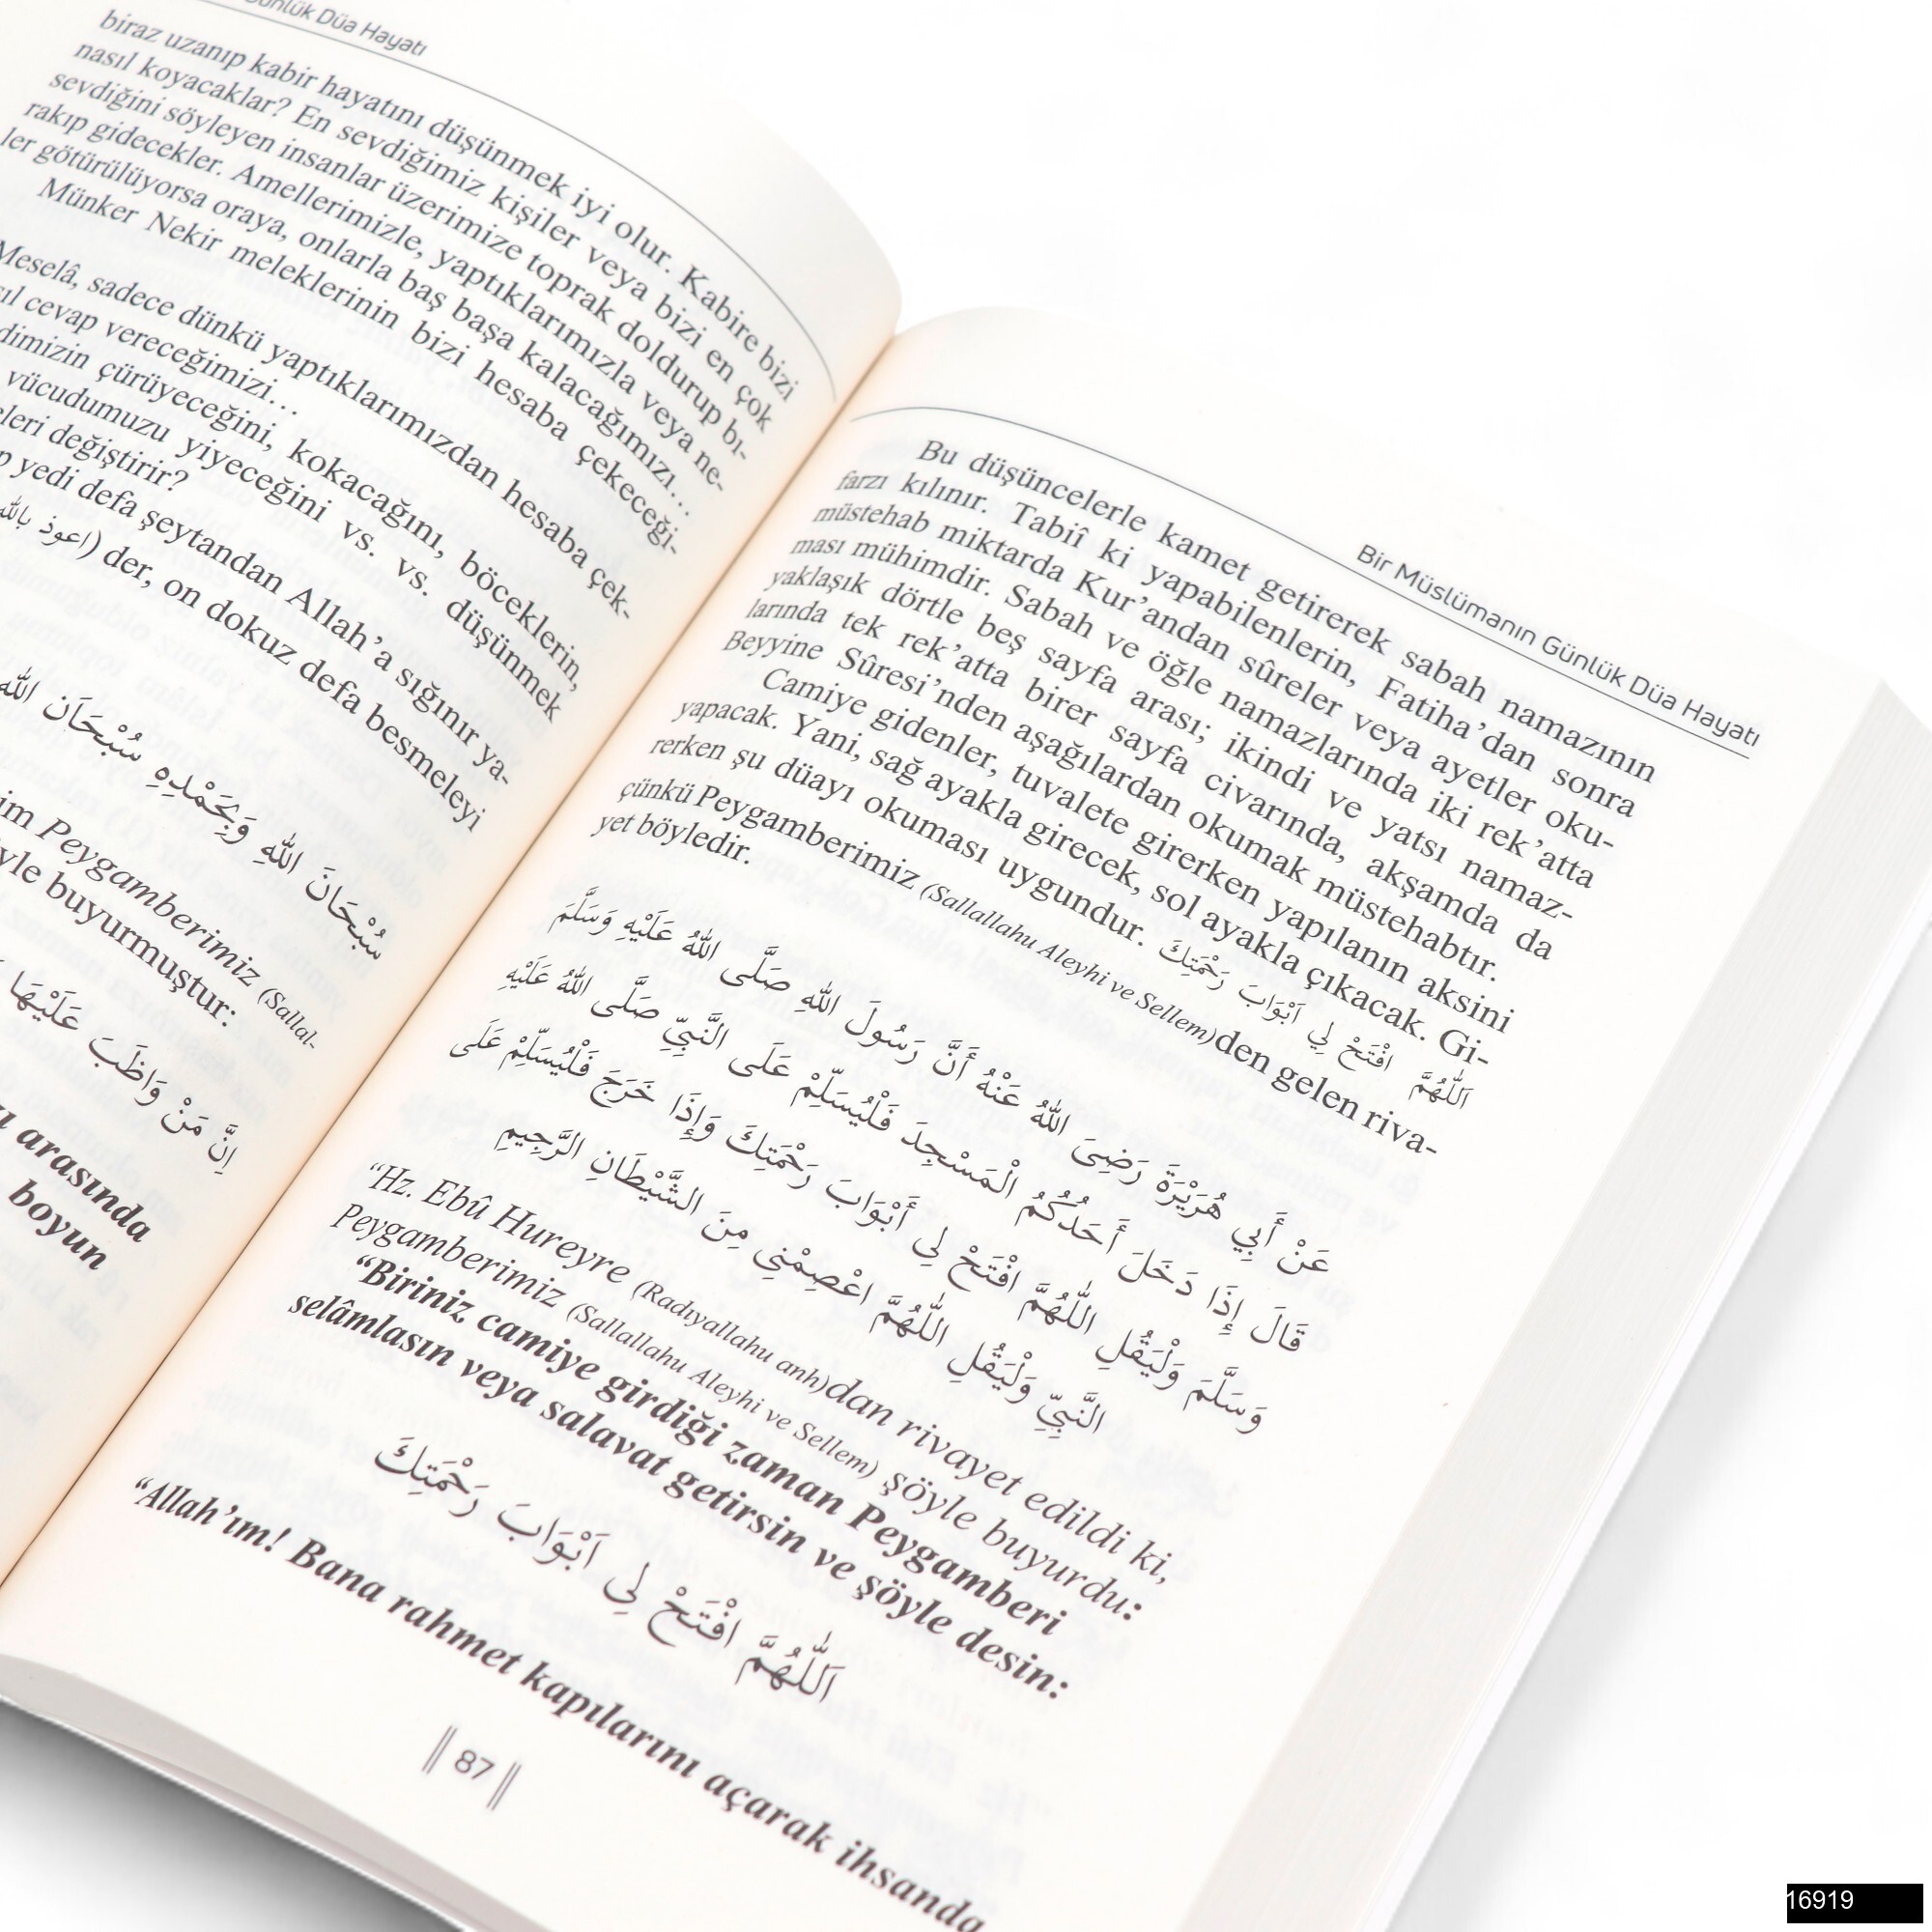 Günlük Düa Hayatı
biraz uzanıp kabir hayatını düşünmek iyi olur. Kabire bizi
nasıl koyacaklar? En sevdiğimiz kişiler veya bizi en çok
sevdiğini söyleyen insanlar üzerimize toprak doldurup bı-
rakıp gidecekler. Amellerimizle, yaptıklarımızla veya ne-
ler götürülüyorsa oraya, onlarla baş başa kalacağımızı...
Münker Nekir meleklerinin bizi hesaba çekeceği-
Meselâ, sadece dünkü yaptıklarımızdan hesaba çek-
cevap vereceğimizi...
çürüyeceğini, kokacağını, böceklerin,
vücudumuzu yiyeceğini vs. vs. düşünmek
değiştirir?
yedi defa şeytandan Allah'a sığınır ya-
(اعوذ بالله der, on dokuz defa besmeleyi
سُبْحَانَ اللّٰهِ وَبِحَمْدِهِ سُبْحَانَ اللّٰهِ
Peygamberimiz (Sallal-
buyurmuştur:
اِنَّ مَنْ وَاظَبَ عَلَيْهَا
arasında
boyun
Bir Müslümanın Günlük Düa Hayatı
Bu düşüncelerle kamet getirerek sabah namazının
farzı kılınır. Tabiî ki yapabilenlerin, Fatiha'dan sonra
müstehab miktarda Kur'andan sûreler veya ayetler oku-
ması mühimdir. Sabah ve öğle namazlarında iki rek'atta
yaklaşık dörtle beş sayfa arası; ikindi ve yatsı namaz-
larında tek rek'atta birer sayfa civarında, akşamda da
Beyyine Sûresi'nden aşağılardan okumak müstehabtır.
Camiye gidenler, tuvalete girerken yapılanın aksini
yapacak. Yani, sağ ayakla girecek, sol ayakla çıkacak. Gi-
rerken şu düayı okuması uygundur. اَللّٰهُمَّ افْتَحْ لِي اَبْوَابَ رَحْمَتِكَ
çünkü Peygamberimiz (Sallallahu Aleyhi ve Sellem)den gelen riva-
yet böyledir.
عَنْ أَبِي هُرَيْرَةَ رَضِىَ اللّٰهُ عَنْهُ أَنَّ رَسُولَ اللّٰهِ صَلَّى اللّٰهُ عَلَيْهِ وَسَلَّمَ
قَالَ إِذَا دَخَلَ أَحَدُكُمُ الْمَسْجِدَ فَلْيُسَلِّمْ عَلَى النَّبِيِّ صَلَّى اللّٰهُ عَلَيْهِ
وَسَلَّمَ وَلْيَقُلِ اللّٰهُمَّ افْتَحْ لِي أَبْوَابَ رَحْمَتِكَ وَإِذَا خَرَجَ فَلْيُسَلِّمْ عَلَى
النَّبِيِّ وَلْيَقُلِ اللّٰهُمَّ اعْصِمْنِي مِنَ الشَّيْطَانِ الرَّجِيمِ
“Hz. Ebû Hureyre (Radıyallahu anh)dan rivayet edildi ki,
Peygamberimiz (Sallallahu Aleyhi ve Sellem) şöyle buyurdu:
“Biriniz camiye girdiği zaman Peygamberi
selâmlasın veya salavat getirsin ve şöyle desin:
اَللّٰهُمَّ افْتَحْ لِي اَبْوَابَ رَحْمَتِكَ
“Allah'ım! Bana rahmet kapılarını açarak ihsanda
87
16919